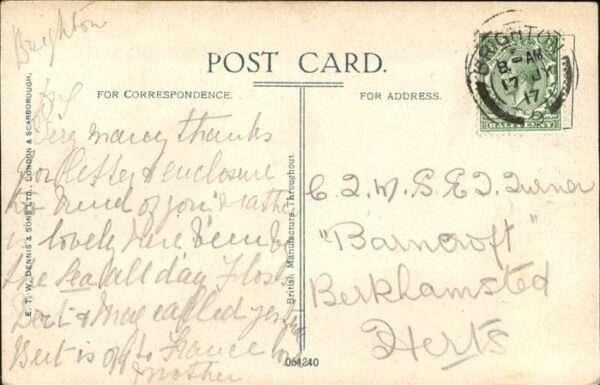 Brighton
POST CARD.
FOR CORRESPONDENCE.
FOR ADDRESS.
BRIGHTON
8 - AM
17 JY
17
Very many thanks
for letter & enclosure
kind of you Weather
is lovely Have been by
the Sea all day
Dort & May called
Bert is off to France
Mother
C.Q.M.S. E.J. Turner
"Barncroft"
Berkhamsted
Herts
E. T. W. DENNIS & SONS, LTD., LONDON & SCARBOROUGH.
British Manufacture Throughout.
064240